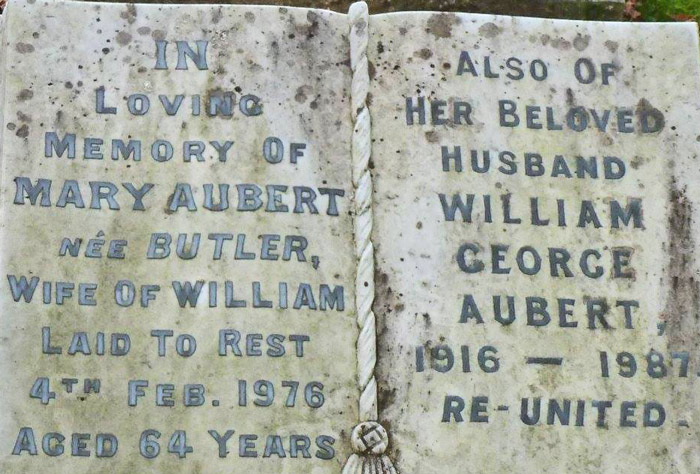 IN
LOVING
MEMORY OF
MARY AUBERT
NÉE BUTLER,
WIFE OF WILLIAM
LAID TO REST
4TH FEB. 1976
AGED 64 YEARS
ALSO OF
HER BELOVED
HUSBAND
WILLIAM
GEORGE
AUBERT,
1916 — 1987.
RE-UNITED.